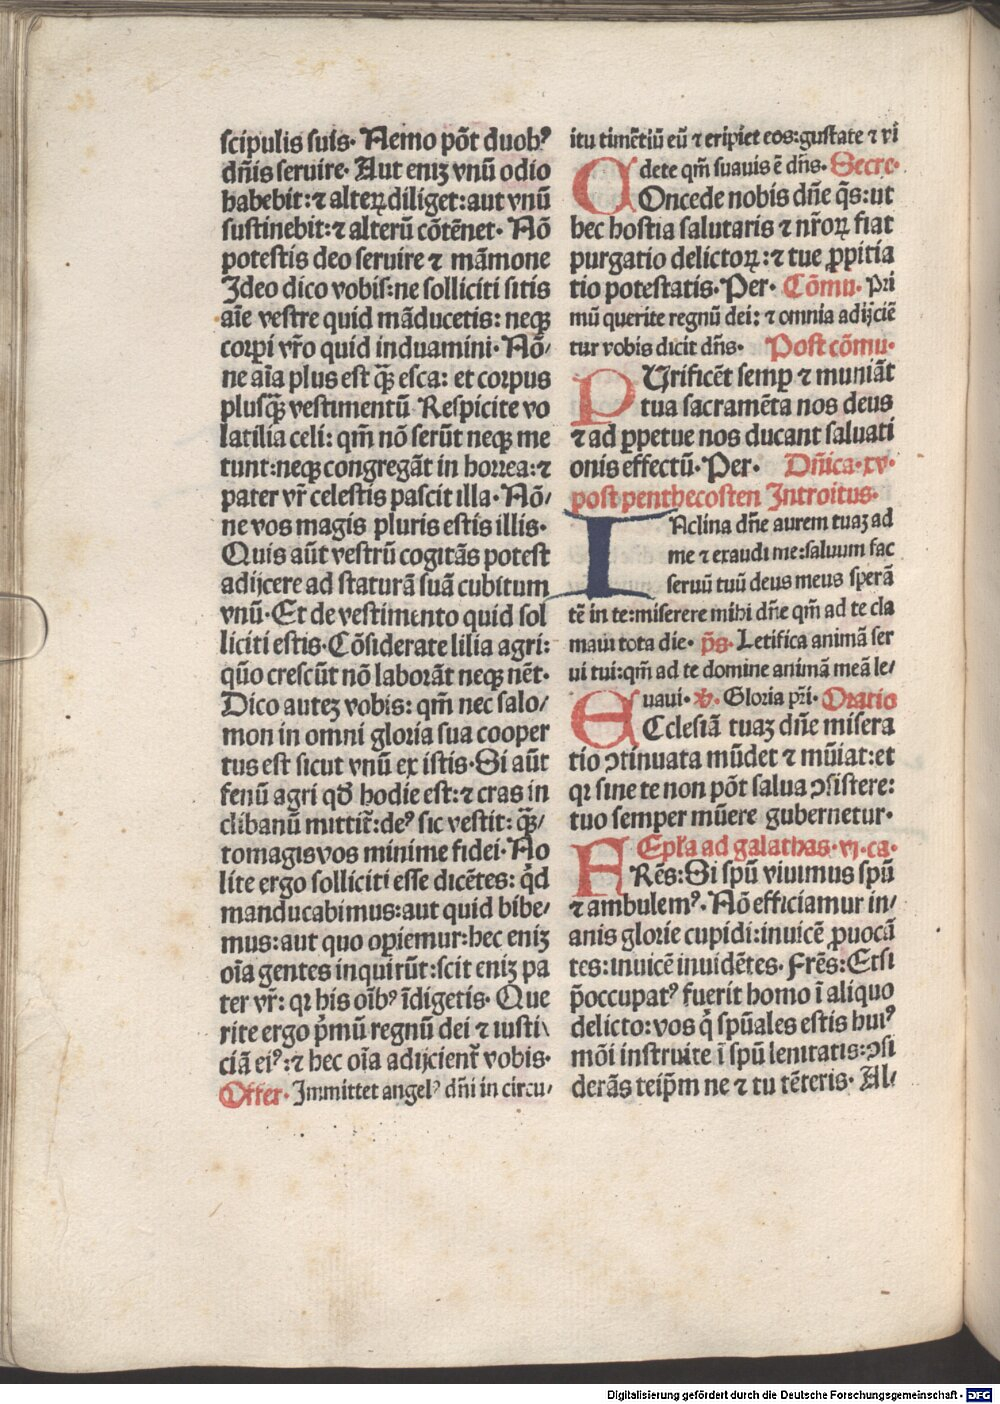 scipulis suis· Nemo põt duobꝰ
dñis seruire· Aut eniꝫ vnũ odio
habebit: ⁊ alteꝝ diliget: aut vnũ
sustinebit: ⁊ alterũ cõtẽnet· Nõ
potestis deo seruire ⁊ mãmone
Ideo dico vobis: ne solliciti sitis
aĩe vestre quid mãducetis: neqꝫ
corpi vr̃o quid induamini· Nõ/
ne aĩa plus est q̃ꝫ esca: et corpus
plusq̃ꝫ vestimentũ Respicite vo
latilia celi: qm̃ nõ serũt neqꝫ me
tunt: neqꝫ congregãt in horrea: ⁊
pater vr̃ celestis pascit illa· Nõ/
ne vos magis pluris estis illis·
Quis aũt vestrũ cogitãs potest
adijcere ad staturã suã cubitum
vnũ· Et de vestimento quid sol
liciti estis· Cõsiderate lilia agri:
quõ crescũt nõ laborãt neqꝫ nẽt·
Dico auteꝫ vobis: qm̃ nec salo/
mon in omni gloria sua cooper
tus est sicut vnũ ex istis· Si aũt
fenũ agri qđ hodie est: ⁊ cras in
clibanũ mittit̃: deꝰ sic vestit: q̃ꝫ/
tomagis vos minime fidei· No
lite ergo solliciti esse dicẽtes: qͥd
manducabimus: aut quid bibe/
mus: aut quo opiemur: hec eniꝫ
oĩa gentes inquirũt: scit eniꝫ pa
ter vr̃: qꝛ his oĩbꝰ ĩdigetis· Que
rite ergo pͥmũ regnũ dei ⁊ iusti\
ciã eiꝰ: ⁊ hec oĩa adijcient̃ vobis·
Offer· Immittet angelꝰ dñi in circu/
itu timẽtiũ eũ ⁊ eripiet eos: gustate ⁊ vi
dete qm̃ suauis ẽ dñs· Secre·
COncede nobis dñe q̃s: ut
hec hostia salutaris ⁊ nr̃oꝝ fiat
purgatio delictoꝝ: ⁊ tue ꝓpitia
tio potestatis· Per· Cõmu· Pri
mũ querite regnũ dei: ⁊ omnia adijciẽ
tur vobis dicit dñs· Post cõmu·
PUrificẽt semꝑ ⁊ muniãt
tua sacramẽta nos deus
⁊ ad ꝑpetue nos ducant saluati
onis effectũ· Per· Dñica· xv·
post penthecosten Introitus·
INclina dñe aurem tuaꝫ ad
me ⁊ exaudi me: saluum fac
seruũ tuũ deus meus sperã
tẽ in te: miserere mihi dñe qm̃ ad te cla
maui tota die· p̃s· Letifica animã ser
ui tui: qm̃ ad te domine animã meã le/
uaui· ℣· Gloria pr̃i· Oratio
ECclesiã tuaꝫ dñe misera
tio ↄtinuata mũdet ⁊ mũiat: et
qꝛ sine te non põt salua ↄsistere:
tuo semper mũere gubernetur·
Epl̃a ad galathas· vj· ca·
FRẽs: Si spũ viuimus spũ
⁊ ambulemꝰ· Nõ efficiamur in/
anis glorie cupidi: inuicẽ ꝓuocã
tes: inuicẽ inuidẽtes· Frẽs: Etsi
p̃occupatꝰ fuerit homo ĩ aliquo
delicto: vos qͥ spũales estis huiꝰ
mõi instruite ĩ spũ lenitatis: ↄsi
derãs teip̃m ne ⁊ tu tẽteris· Al/
Digitalisierung gefördert durch die Deutsche Forschungsgemeinschaft - DFG